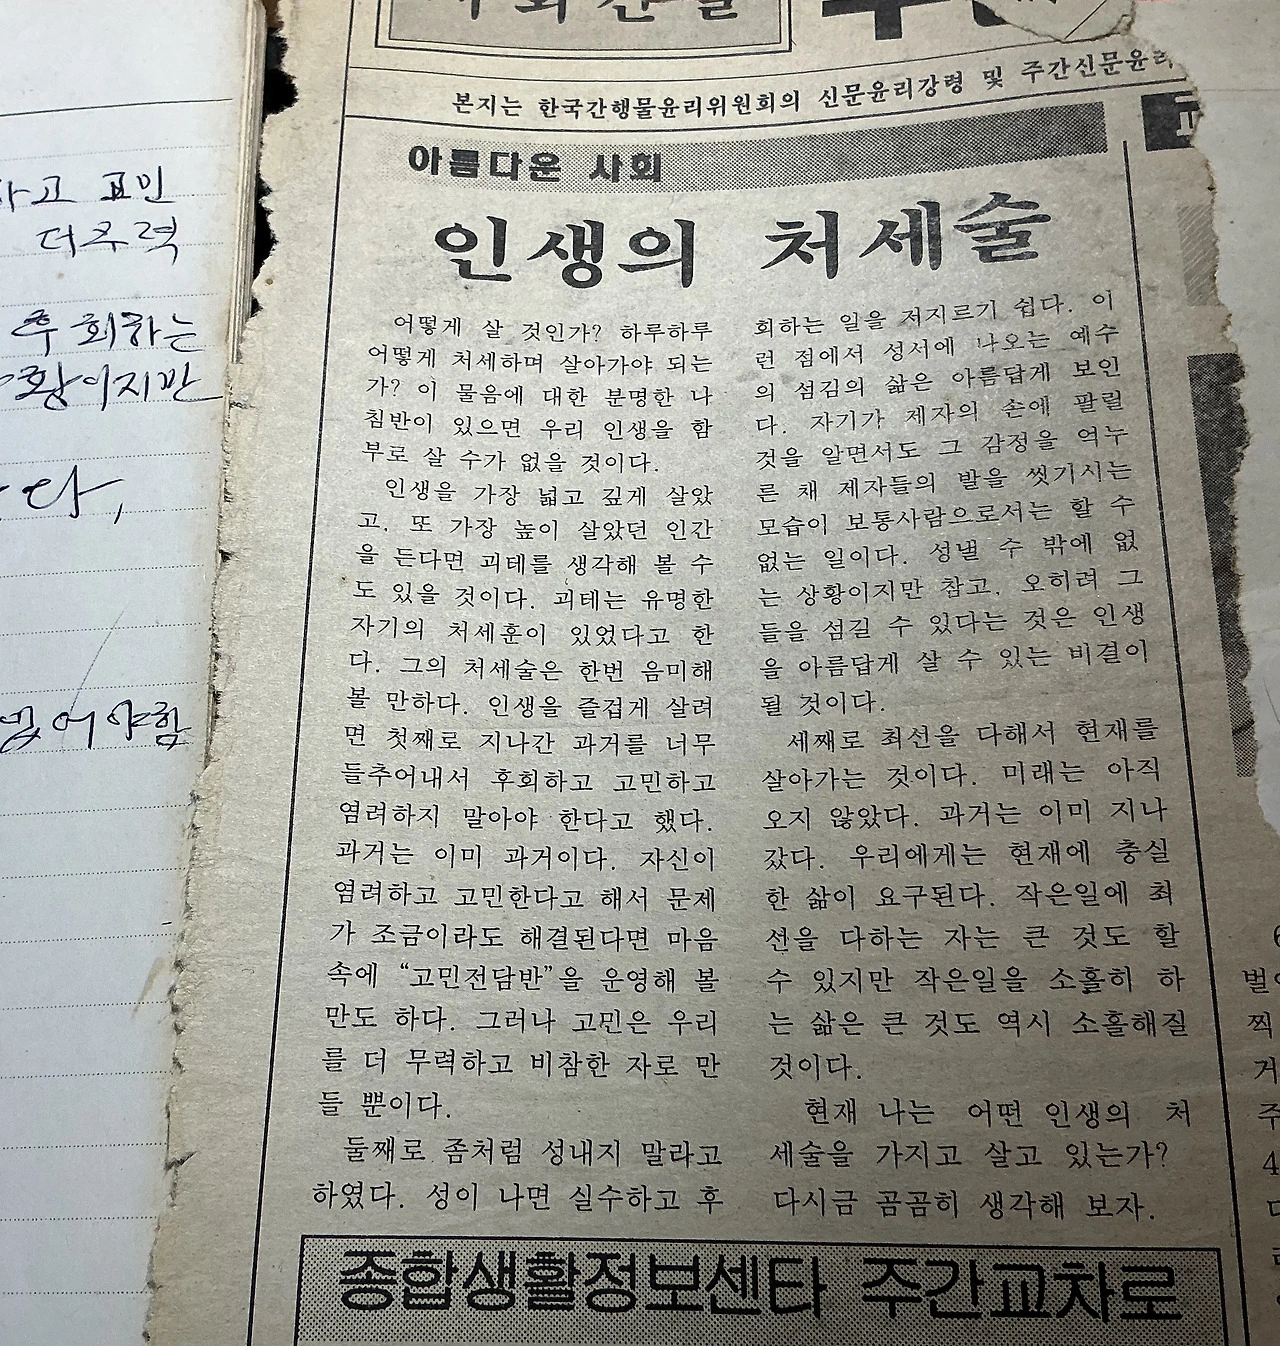 고민
더 무력
후회하는
황이지만
다,
넘어야함
본지는 한국간행물윤리위원회의 신문윤리강령 및 주간신문윤리
아름다운 사회
인생의 처세술
어떻게 살 것인가? 하루하루
어떻게 처세하며 살아가야 되는
가? 이 물음에 대한 분명한 나
침반이 있으면 우리 인생을 함
부로 살 수가 없을 것이다.
인생을 가장 넓고 깊게 살았
고, 또 가장 높이 살았던 인간
을 든다면 괴테를 생각해 볼 수
도 있을 것이다. 괴테는 유명한
자기의 처세훈이 있었다고 한
다. 그의 처세술은 한번 음미해
볼 만하다. 인생을 즐겁게 살려
면 첫째로 지나간 과거를 너무
들추어내서 후회하고 고민하고
염려하지 말아야 한다고 했다.
과거는 이미 과거이다. 자신이
염려하고 고민한다고 해서 문제
가 조금이라도 해결된다면 마음
속에 “고민전담반”을 운영해 볼
만도 하다. 그러나 고민은 우리
를 더 무력하고 비참한 자로 만
들 뿐이다.
둘째로 좀처럼 성내지 말라고
하였다. 성이 나면 실수하고 후
회하는 일을 저지르기 쉽다. 이
런 점에서 성서에 나오는 예수
의 섬김의 삶은 아름답게 보인
다. 자기가 제자의 손에 팔릴
것을 알면서도 그 감정을 억누
른 채 제자들의 발을 씻기시는
모습이 보통사람으로서는 할 수
없는 일이다. 성낼 수 밖에 없
는 상황이지만 참고, 오히려 그
들을 섬길 수 있다는 것은 인생
을 아름답게 살 수 있는 비결이
될 것이다.
세째로 최선을 다해서 현재를
살아가는 것이다. 미래는 아직
오지 않았다. 과거는 이미 지나
갔다. 우리에게는 현재에 충실
한 삶이 요구된다. 작은일에 최
선을 다하는 자는 큰 것도 할
수 있지만 작은일을 소홀히 하
는 삶은 큰 것도 역시 소홀해질
것이다.
현재 나는 어떤 인생의 처
세술을 가지고 살고 있는가?
다시금 곰곰히 생각해 보자.
종합생활정보센타 주간교차로